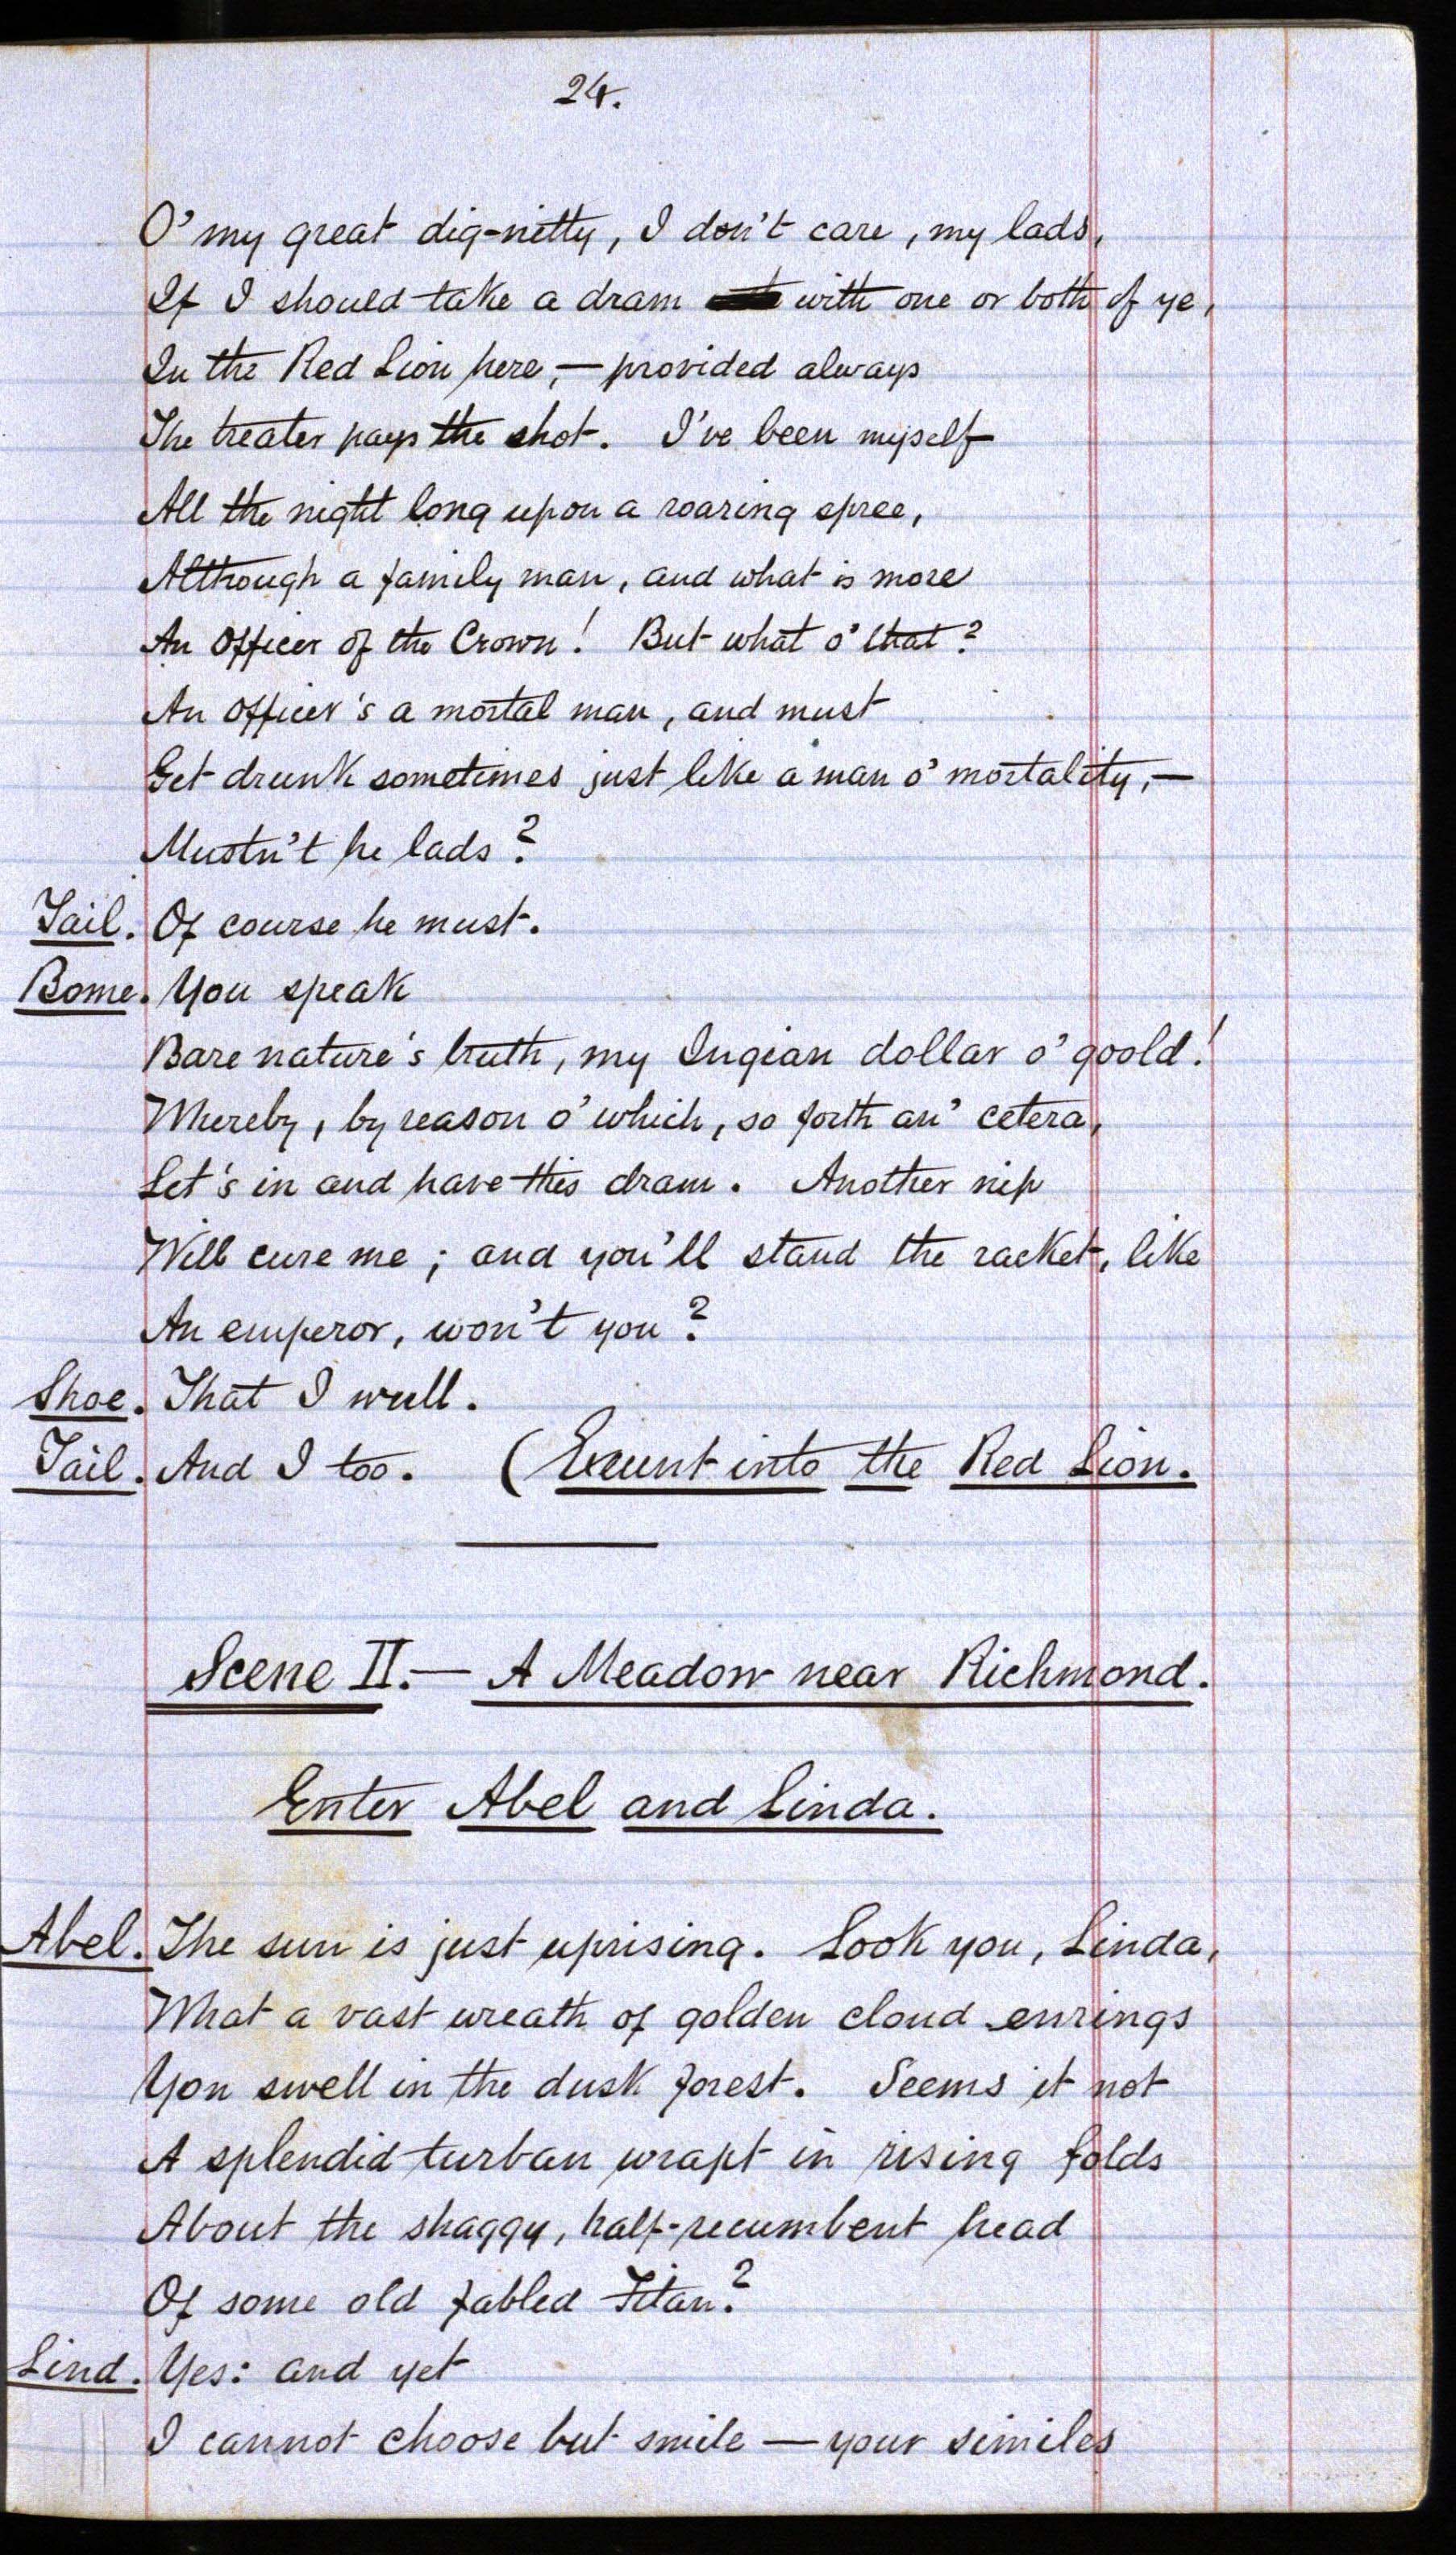 24.
O' my great dig-nitty, I don't care, my lads,
If I should take a dram with one or both of ye,
In the Red Lion here,— provided always
The treater pays the shot. I've been myself
All the night long upon a roaring spree,
Although a family man, and what is more
An Officer of the Crown! But what o' that?
An officer's a mortal man, and must
Get drunk sometimes just like a man o' mortality,—
Mustn't he lads?
Tail. Of course he must.
Bome. You speak
Bare nature's truth, my Ingian dollar o' goold!
Whereby, by reason o' which, so forth an' cetera,
Let's in and have this dram. Another nip
Will cure me; and you'll stand the racket, like
An emperor, won't you?
Shoe. That I wull.
Tail. And I too. (Exeunt into the Red Lion.
Scene II.— A Meadow near Richmond.
Enter Abel and Linda.
Abel. The sun is just uprising. Look you, Linda,
What a vast wreath of golden cloud enrings
Yon swell in the dusk forest. Seems it not
A splendid turban wrapt in rising folds
About the shaggy, half-recumbent head
Of some old fabled Titan?
Lind. Yes: and yet
I cannot choose but smile — your similes